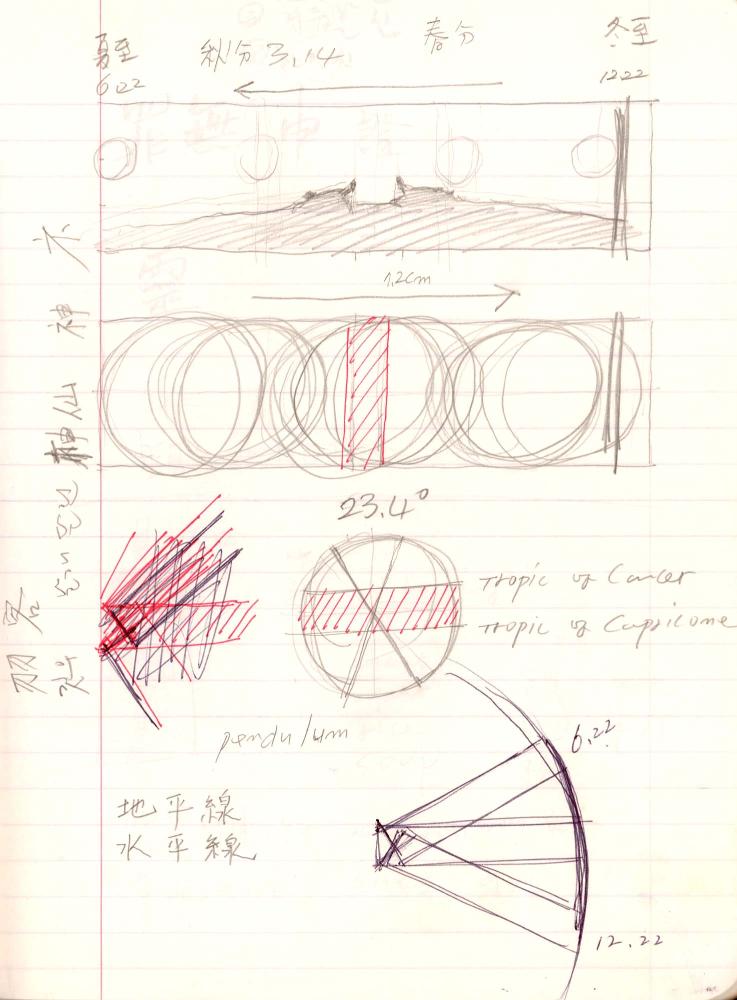 夏至 秋分 3.14 春分 冬至
6.22 12.22
1.2cm
23.4°
Tropic of Cancer
Tropic of Capricorne
pendulum
6.22
地平線
水平線
12.22
神
神仙